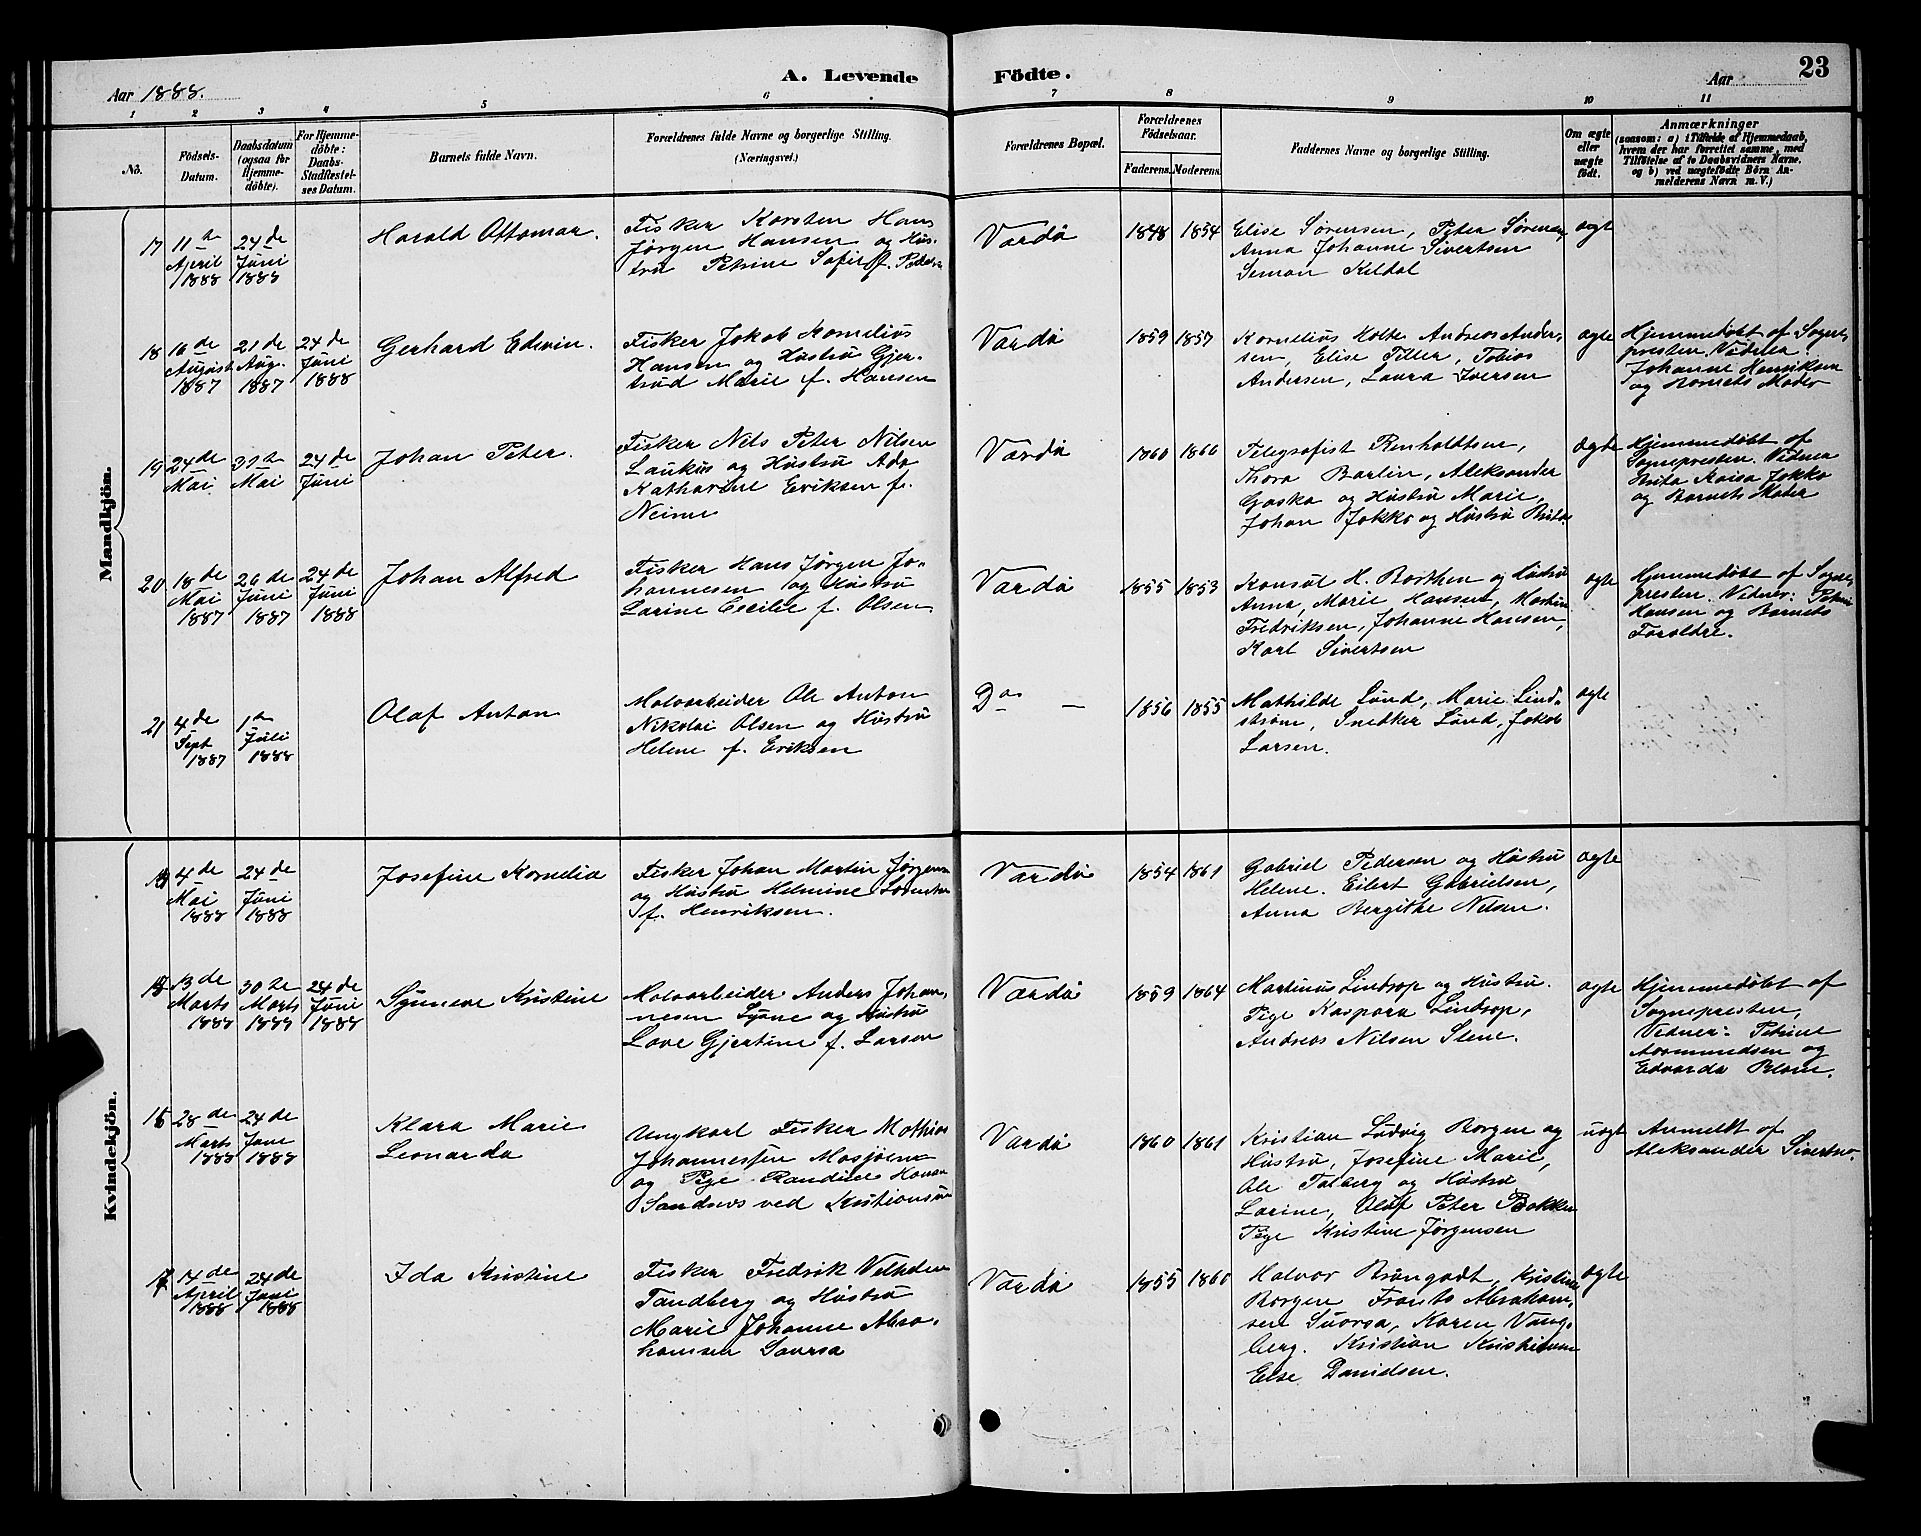 Aar 1888.
A. Levende
Födte.
Aar
23
1 2 3 4 5 6 7 8 9 10 11
No.
Födsels-
Datum.
Daabsdatum
(ogsaa for
Hjemme-
döbte).
For Hjemme-
döbte:
Daabs-
Stadfæstel-
ses Datum.
Barnets fulde Navn.
Forældrenes fulde Navne og borgerlige Stilling.
(Næringsvei.)
Forældrenes Bopæl.
Forældrenes
Födselsaar.
Faderens. Moderens.
Faddernes Navne og borgerlige Stilling.
Om ægte
eller
uægte
födt.
Anmærkninger
(saasom: a) i Tilfælde af Hjemmedaab,
hvem der har forrettet samme, med
Tilföielse af to Daabsvidners Navne,
og b) ved uægtefödte Börn An-
melderens Navn m. V.)
Mandkjön.
17
11te
April
1888
24de
Juni
1888
Harald Ottomar.
Fisker Karsten Hans
Jørgen Hansen og Hus-
tru Petrine Sofie f.
Vardø
1848 1854
Elise Sørensen, Peter Sørensen,
Anna Johanne Sivertsen
Simon Kildal
ægte
18
16de
August
1887
21de
Aug.
1887
24de
Juni
1888
Gerhard Edvin.
Fisker Jakob Kornelius
Hansen og Hustru Gjer-
trud Marie f. Hansen
Vardø
1859 1857
Kornelius Holte Andreas Ander-
sen, Elise Tiller, Tobias
Andersen, Laura Iversen
ægte
Hjemmedøbt af Sogne-
presten.
Johanne Henriksen
og Barnets Moder
19
24de
Mai
30te
Mai
24de
Juni
Johan Peter.
Fisker Nils Peter Nilsen
Laukus og Hustru Ada
Katharine Eriksen f.
Neime
Vardø
1860 1866
Telegrafist Renholdtsen,
Thora Barlin, Aleksander
Gaska og Hustru Marie,
Johan Jokko og Hustru Brita
ægte
Hjemmedøbt af
Sognepresten.
Brita Kaisa Jokko
og Barnets Moder
20
18de
Mai
1887
26de
Juni
1887
24de
Juni
1888
Johan Alfred
Fisker Hans Jørgen Jo-
hannesen og Hustru
Larine Cecilie f. Olsen
Vardø
1855 1853
Konsul H. Borthen og Hustru
Anna, Marie Hansen,
Fredriksen, Johanne Hansen,
Karl Sivertsen
ægte
Hjemmedøbt af Sogne-
presten. Vidner: Petrine
Hansen og Barnets
Foreldre.
21
4de
Sept
1887
1te
Juli
1888
Olaf Anton
Malvarbeider Ole Anton
Nikolai Olsen og Hustru
Helene f. Eriksen
Do —
1856 1855
Mathilde Lund, Marie Lind-
strøm, Snedker Lund, Jakob
Larsen.
ægte
Kvindekjön.
4de
Mai
1888
24de
Juni
1888
Josefine Kornelia
Fisker Johan Martin Jørgensen
og Hustru Helmine
f. Henriksen.
Vardø
1854 1861
Gabriel Pedersen og Hustru
Helene. Eilert Gabrielsen,
Anna Bergithe Nilsen.
ægte
13de
Marts
1888
30te
Marts
1888
24de
Juni
1888
Synneve Kristine
Malvarbeider Anders Johan-
nesen Syøne og Hustru
Lave Gjertine f. Larsen
Vardø
1859 1864
Martinus Lindrop og Hustru.
Pige Kaspara Lindrop,
Andreas Nilsen Slene.
ægte
Hjemmedøbt af
Sognepresten,
Vidner: Petrine
Aasmundsen og
Edvarda Blom.
28de
Marts
1888
24de
Juni
1888
Klara Marie
Leonarda
Ungkarl Fisker Mathias
Johannessen Mosjøen
og Pige Randine
Sandnæs ved Kristiansund
Vardø
1860 1861
Kristian Ludvig Borgen og
Hustru, Josefine Marie,
Ole Talberg og Hustru
Larine, Olaf Peter Bakken
Pige Kristine Jørgensen
uægte
Anmeldt af
Aleksander Sivertsen.
14de
April
1888
24de
Juni
1888
Ida Kristine
Fisker Fredrik Vilhelm
Tandberg og Hustru
Marie Johanne Abra-
hamsen Suorsa
Vardø
1855 1860
Halvor Brungodt, Kristine
Borgen Frants Abraham-
sen Suorsa, Karen Vang-
berg. Kristian Kristiansen
Else Danielsen.
ægte